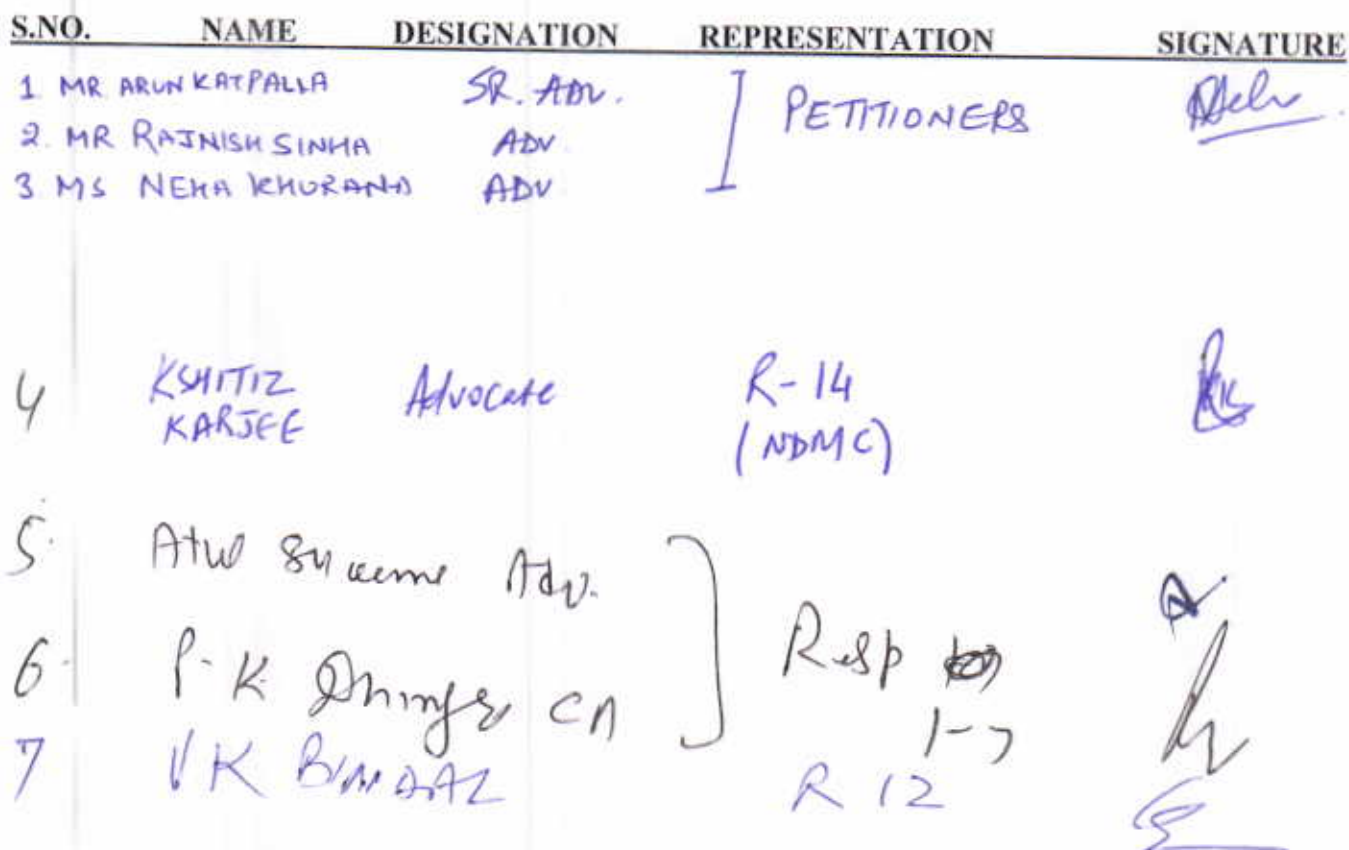 S.NO. NAME DESIGNATION REPRESENTATION SIGNATURE
1 MR ARUN KATPALLA SR. ADV. PETITIONERS
2. MR RAJNISH SINHA ADV
3 MS NEHA KHURANA ADV
4 KSHITIZ Advocate R-14
KARJEE (NDMC)
5. Atul Adv.
6. P.K Dhingra CA Resp
1-7
7 VK R 12